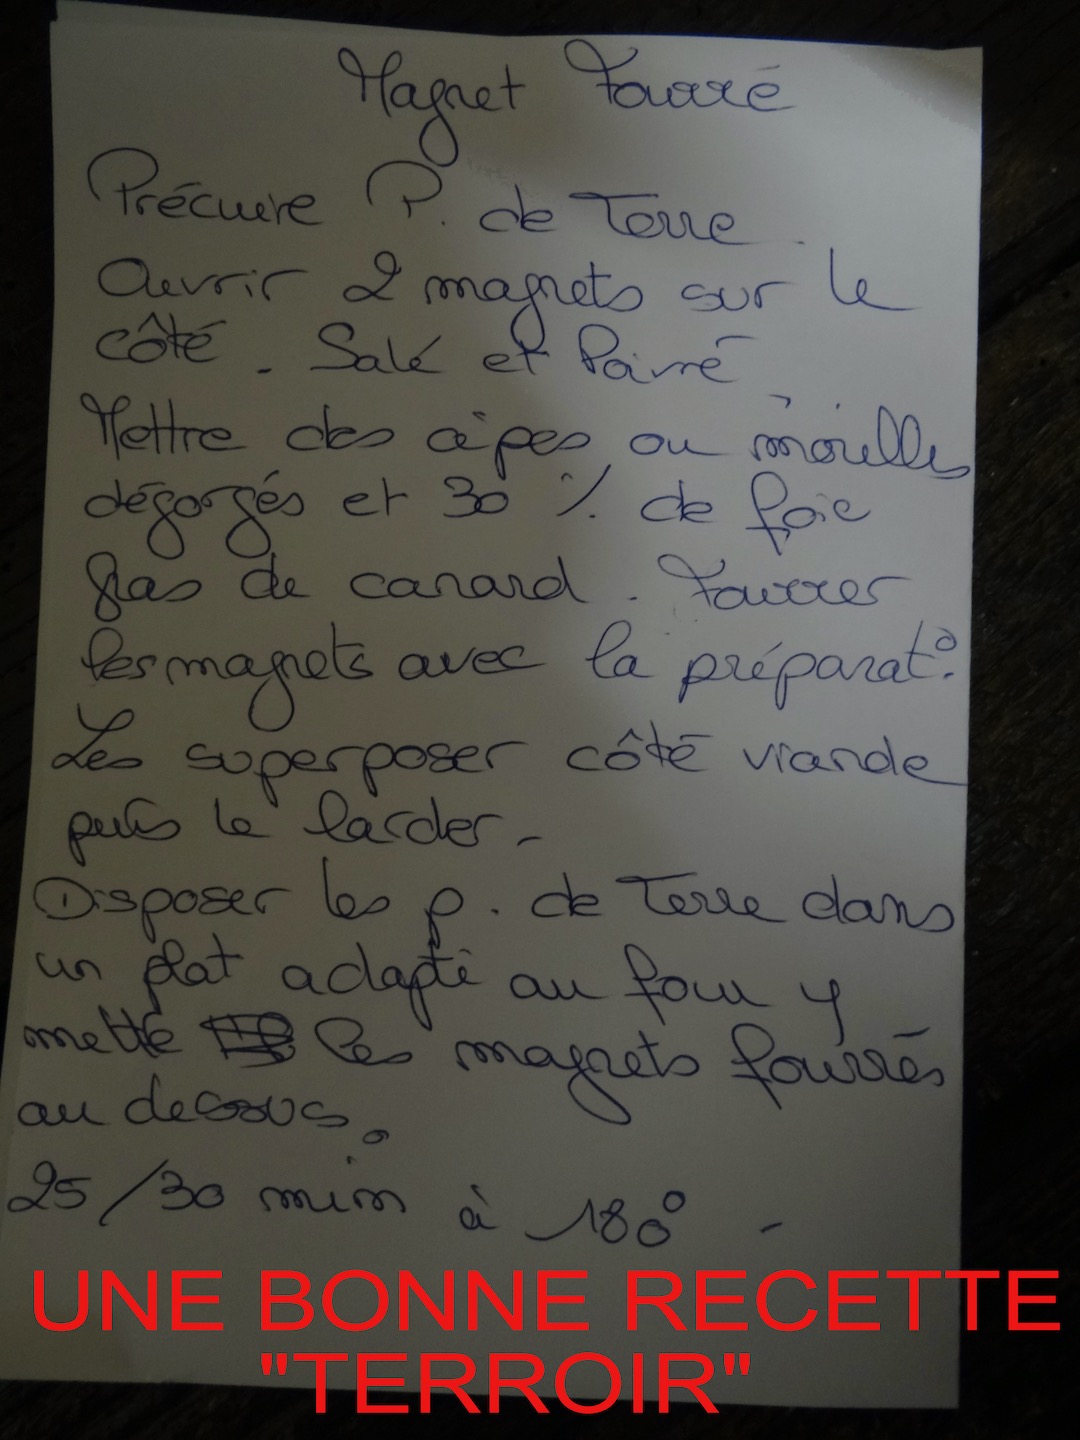 Magret Fourré
Précuire P. de Terre.
Ouvrir 2 magrets sur le
côté. Salé et Poivré
Mettre des cèpes ou morilles
dégorgés et 30 % de foie
gras de canard. Fourrer
les magrets avec la préparat°.
Les superposer côté viande
puis le larder.
Disposer les p. de Terre dans
un plat adapté au four y
mettre les magrets fourrés
au dessous.
25/30 min à 180° -
UNE BONNE RECETTE
"TERROIR"